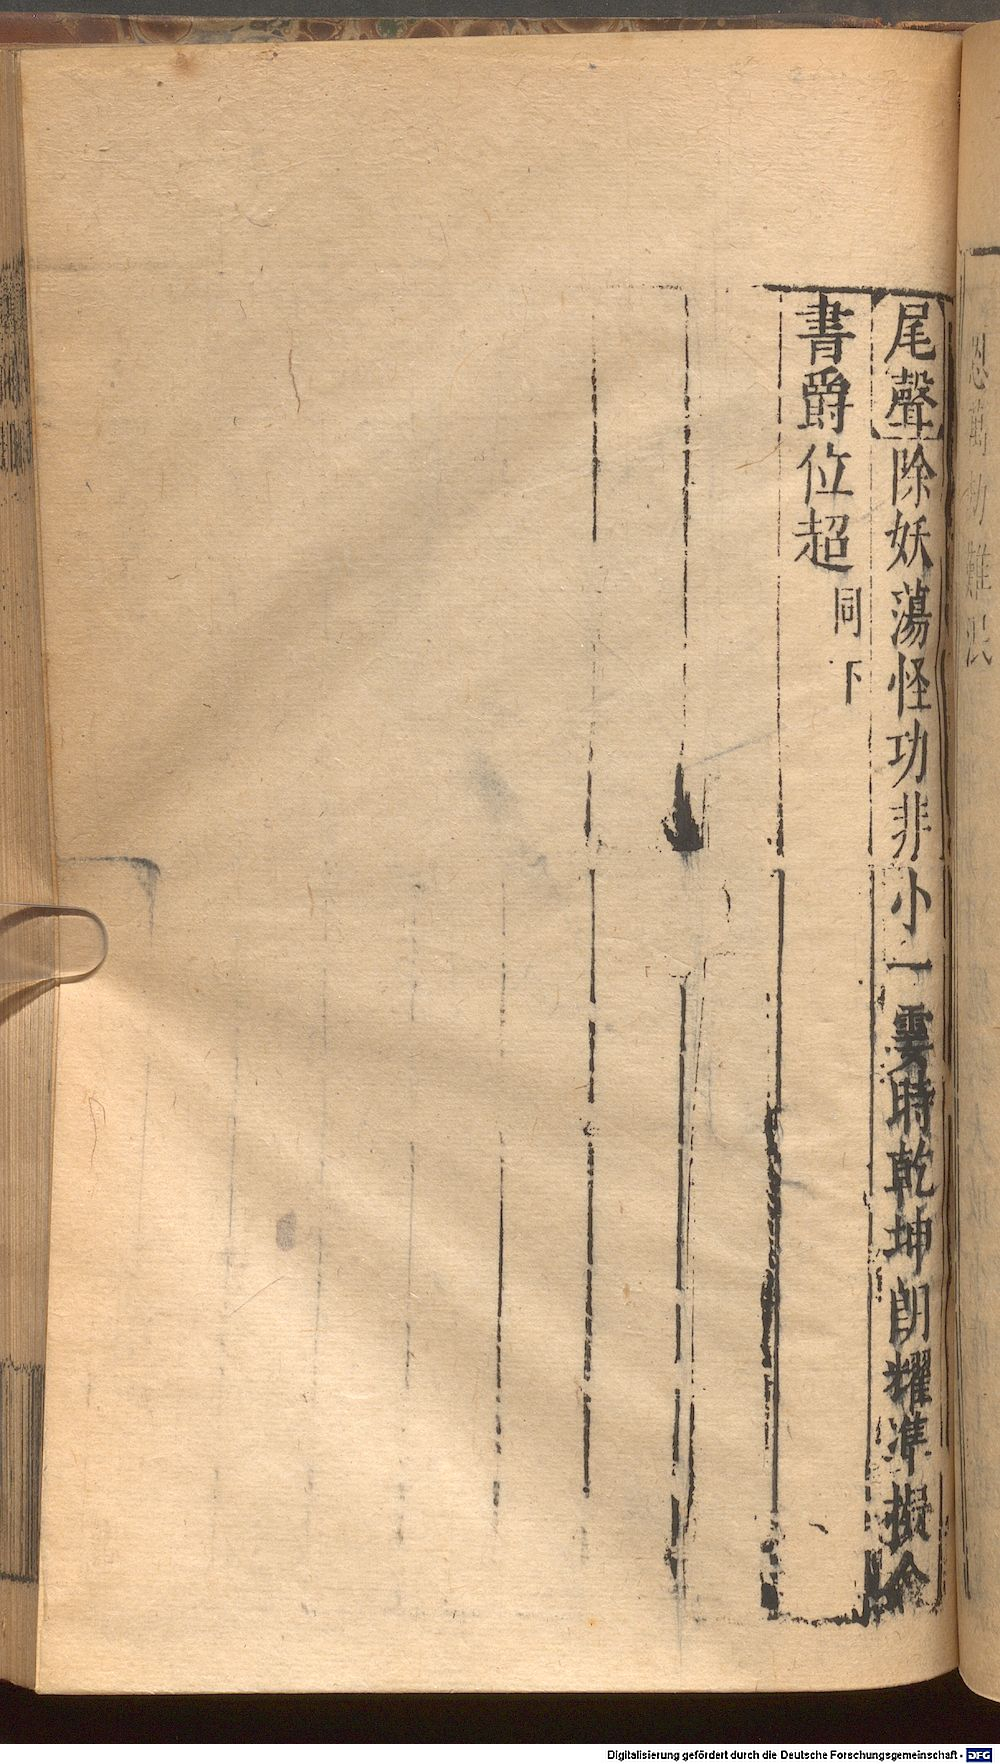 尾聲除妖蕩怪功非小一霎時乾坤朗耀準擬金
書爵位超同下
Digitalisierung gefördert durch die Deutsche Forschungsgemeinschaft - DFG